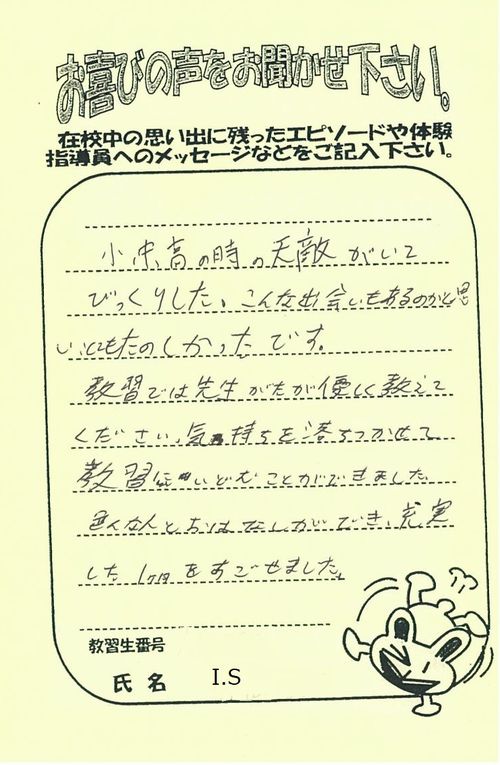 お喜びの声をお聞かせ下さい。
在校中の思い出に残ったエピソードや体験
指導員へのメッセージなどをご記入下さい。
小中高の時の天敵がいて
びっくりした、こんな出会いもあるのかと思
い、とてもたのしかったです。
教習では先生がたが優しく教えて
ください、気持ちを落ちつかせて
教習にいどむことができました。
色んな人とおはなしができ、充実
した1ヶ月をすごせました。
教習生番号
氏名 I.S